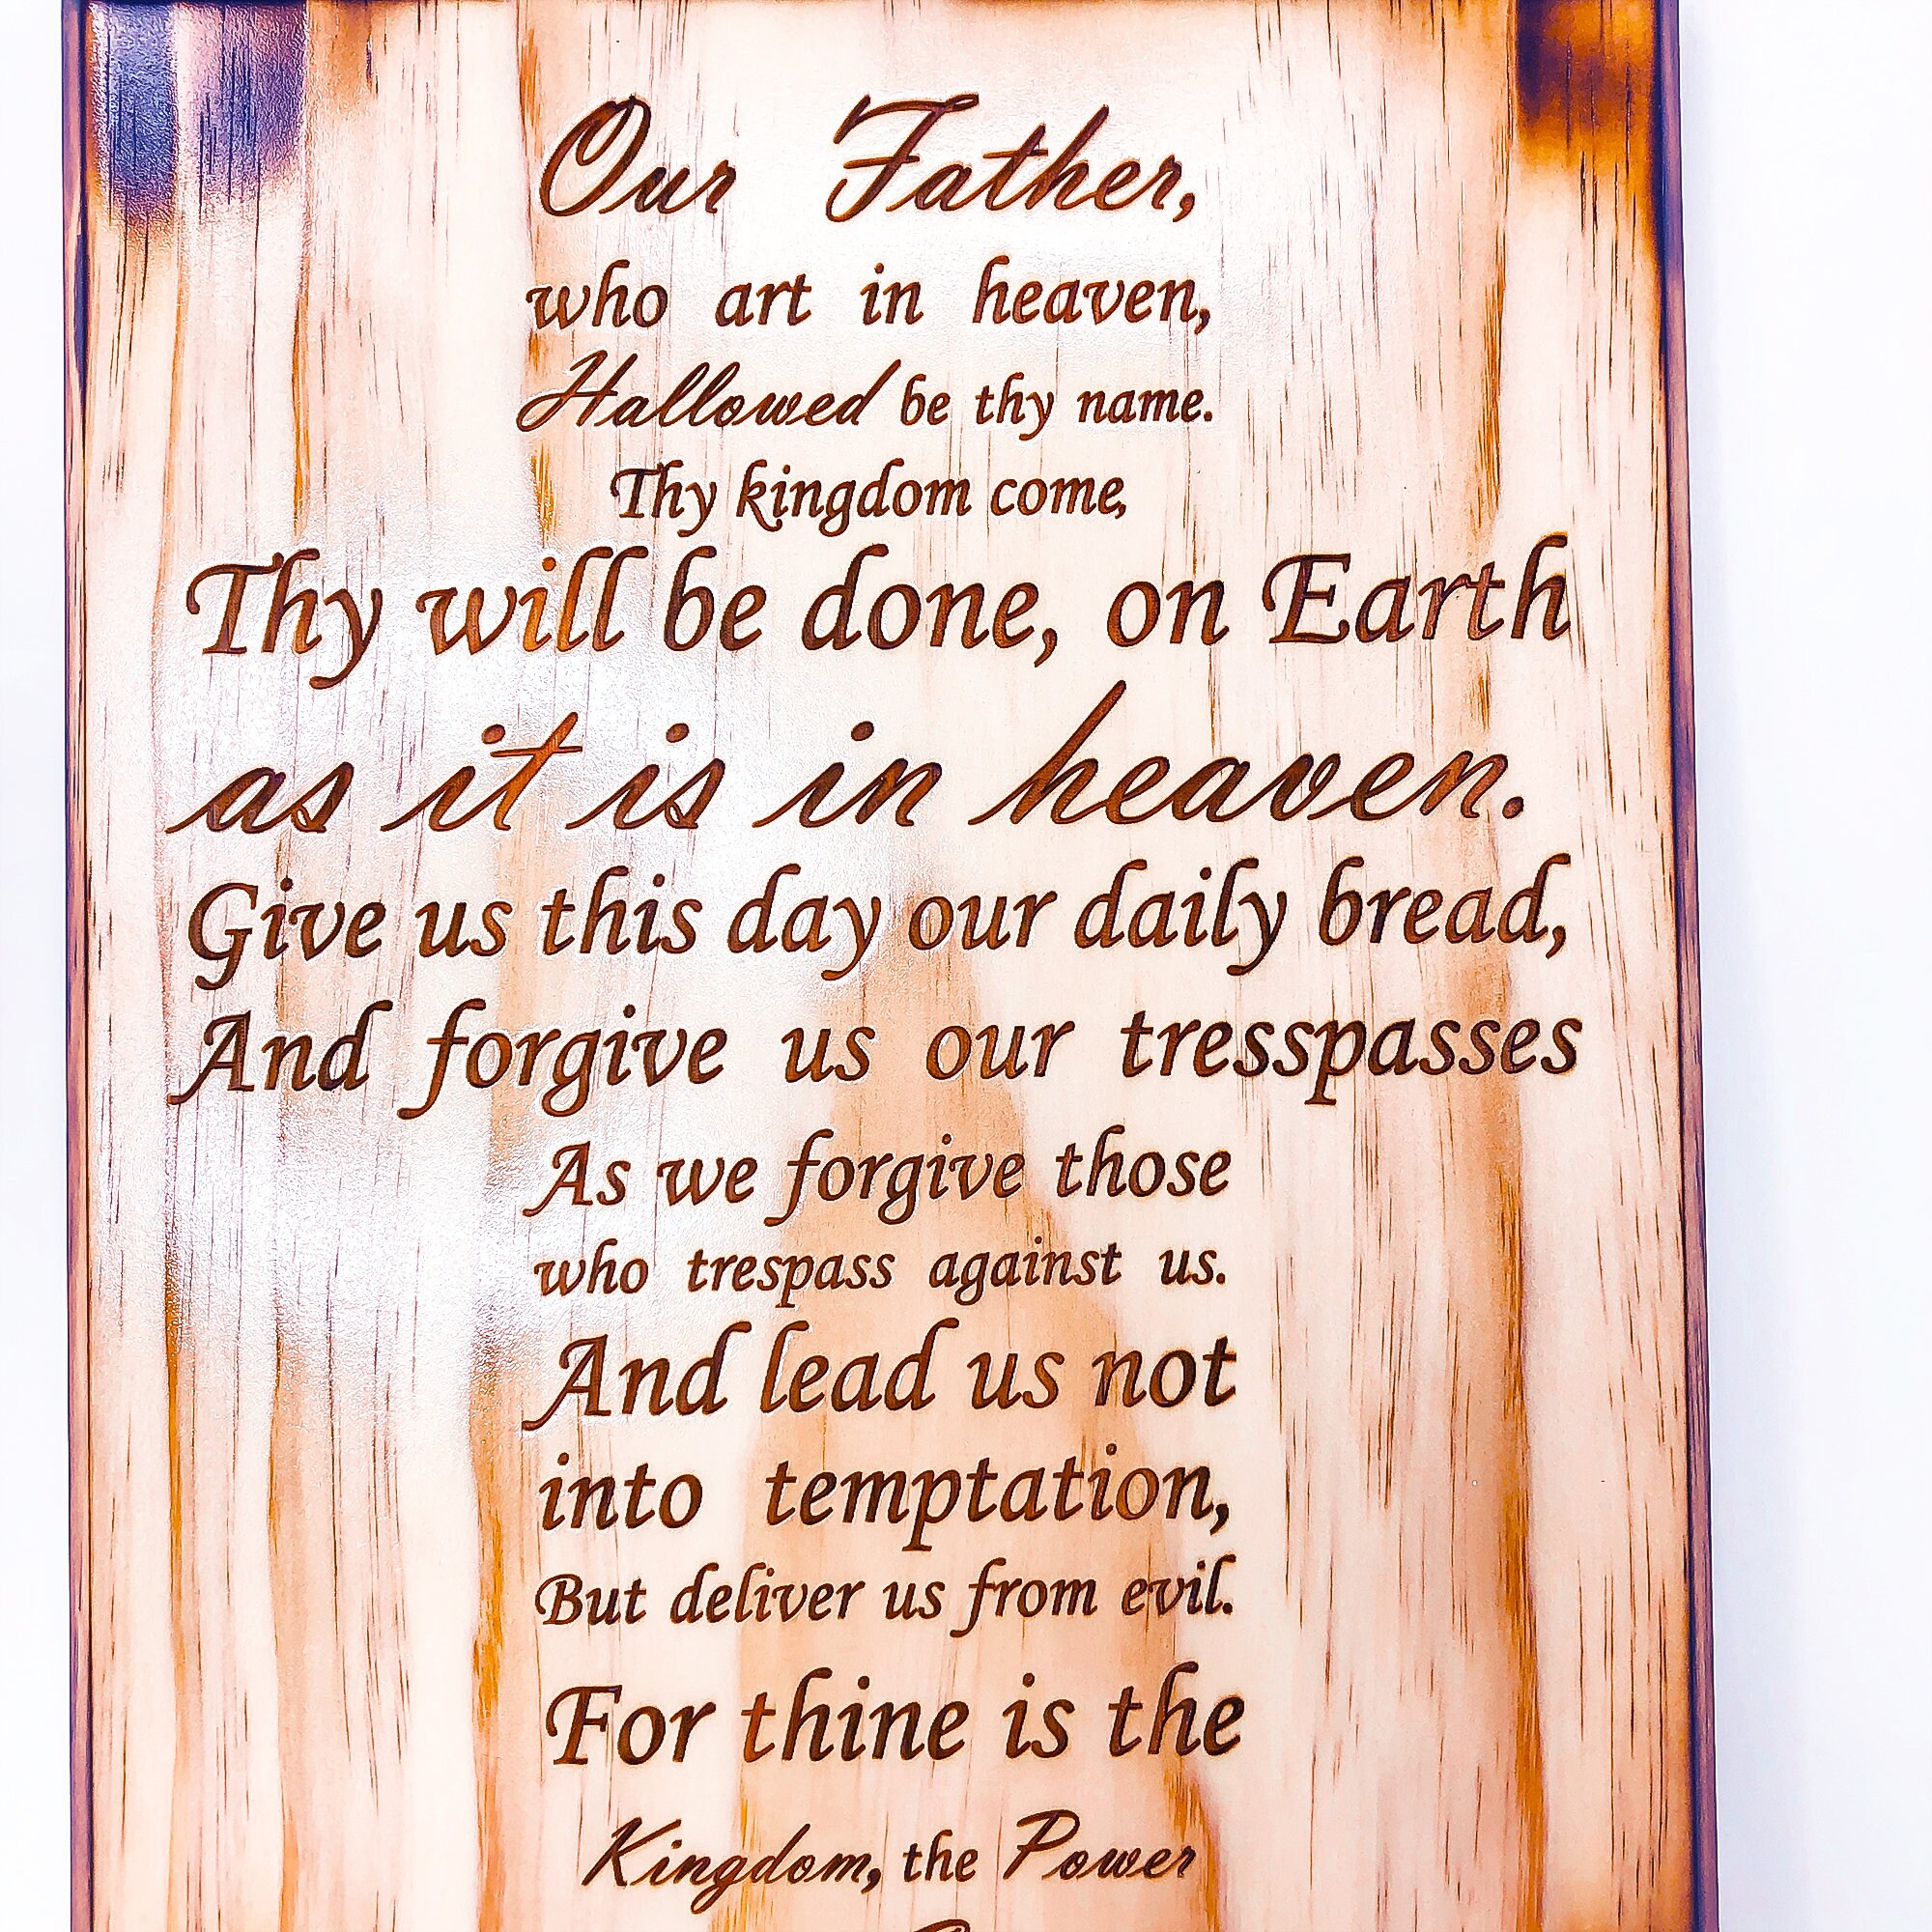 Our Father,
who art in heaven,
Hallowed be thy name.
Thy kingdom come,
Thy will be done, on Earth
as it is in heaven.
Give us this day our daily bread,
And forgive us our tresspasses
As we forgive those
who trespass against us.
And lead us not
into temptation,
But deliver us from evil.
For thine is the
Kingdom, the Power